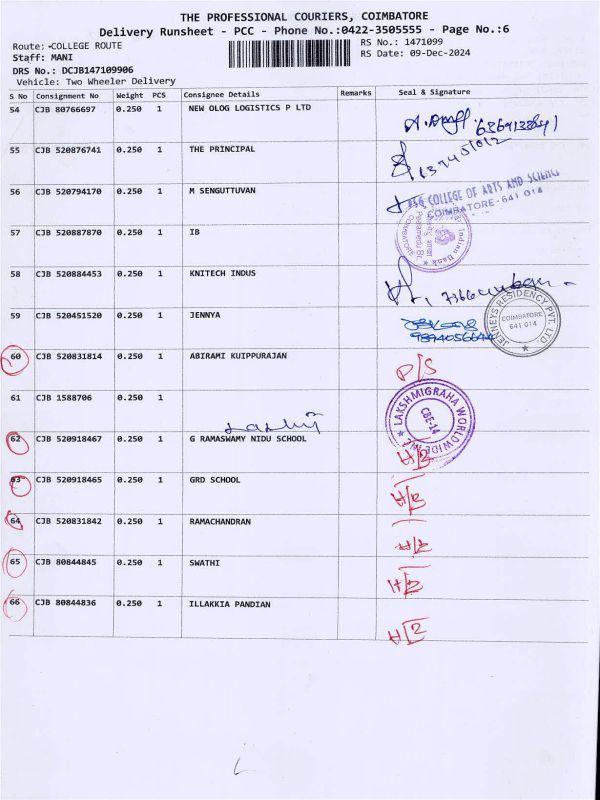 THE PROFESSIONAL COURIERS, COIMBATORE
Delivery Runsheet - PCC - Phone No.:0422-3505555 - Page No.:6
Route: -COLLEGE ROUTE
RS No.: 1471099
Staff: MANI
RS Date: 09-Dec-2024
DRS No.: DCJB147109906
Vehicle: Two Wheeler Delivery
S No Consignment No Weight PCS Consignee Details Remarks Seal & Signature
54 CJB 80766697 0.250 1 NEW OLOG LOGISTICS P LTD
55 CJB 520876741 0.250 1 THE PRINCIPAL
56 CJB 520794170 0.250 1 M SENGUTTUVAN
COLLEGE OF ARTS AND SCIENCE
COIMBATORE - 641 014
57 CJB 520887870 0.250 1 IB
Indian Bank
58 CJB 520884453 0.250 1 KNITECH INDUS
59 CJB 520451520 0.250 1 JENNYA
JENNEYS RESIDENCY PVT. LTD.
COIMBATORE
641 014
60 CJB 520831814 0.250 1 ABIRAMI KUIPPURAJAN
P/S
61 CJB 1588706 0.250 1
LAKSHMIGRAHA WORLDWIDE INC
CBE-14
62 CJB 520918467 0.250 1 G RAMASWAMY NIDU SCHOOL
63 CJB 520918465 0.250 1 GRD SCHOOL
64 CJB 520831842 0.250 1 RAMACHANDRAN
65 CJB 80844845 0.250 1 SWATHI
66 CJB 80844836 0.250 1 ILLAKKIA PANDIAN